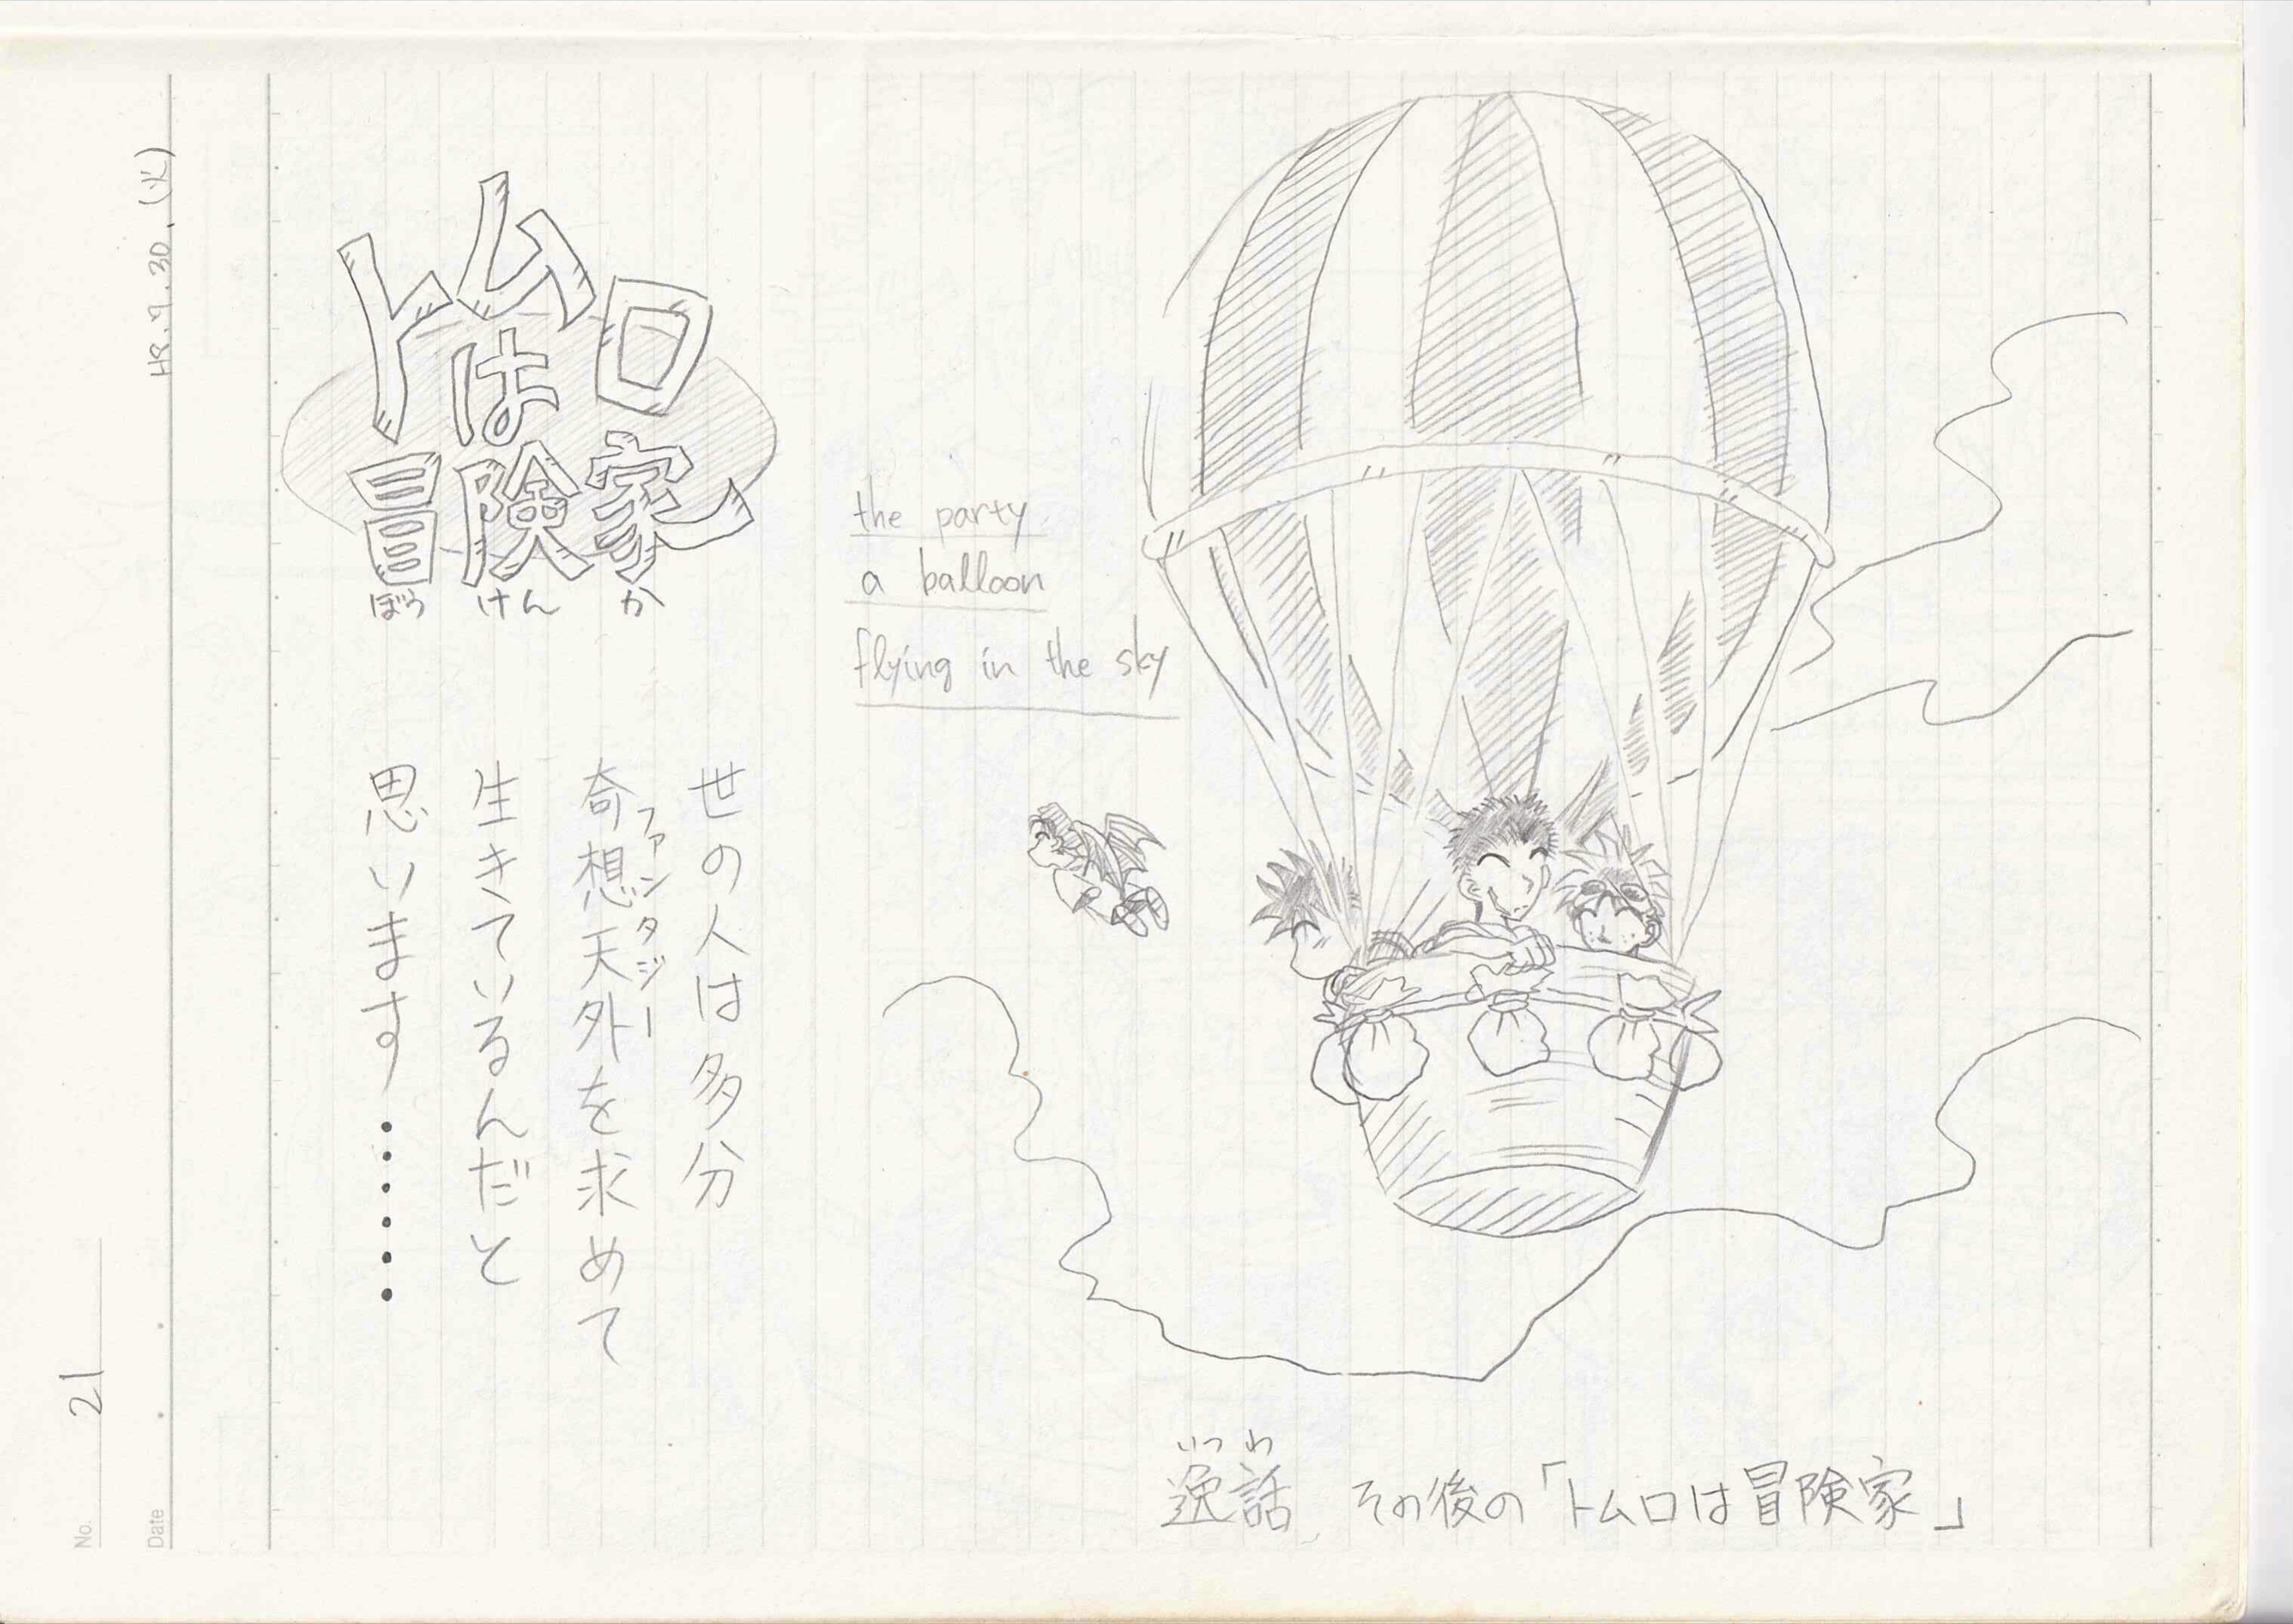 トムロ
は
冒険家
ぼう けん か
the party
a balloon
flying in the sky
世の人は多分
奇想天外を求めて
ファンタジー
生きているんだと
思います・・・・・・
いつ わ
逸話 その後の「トムロは冒険家」
H9.9.30.(火)
No. 21
Date